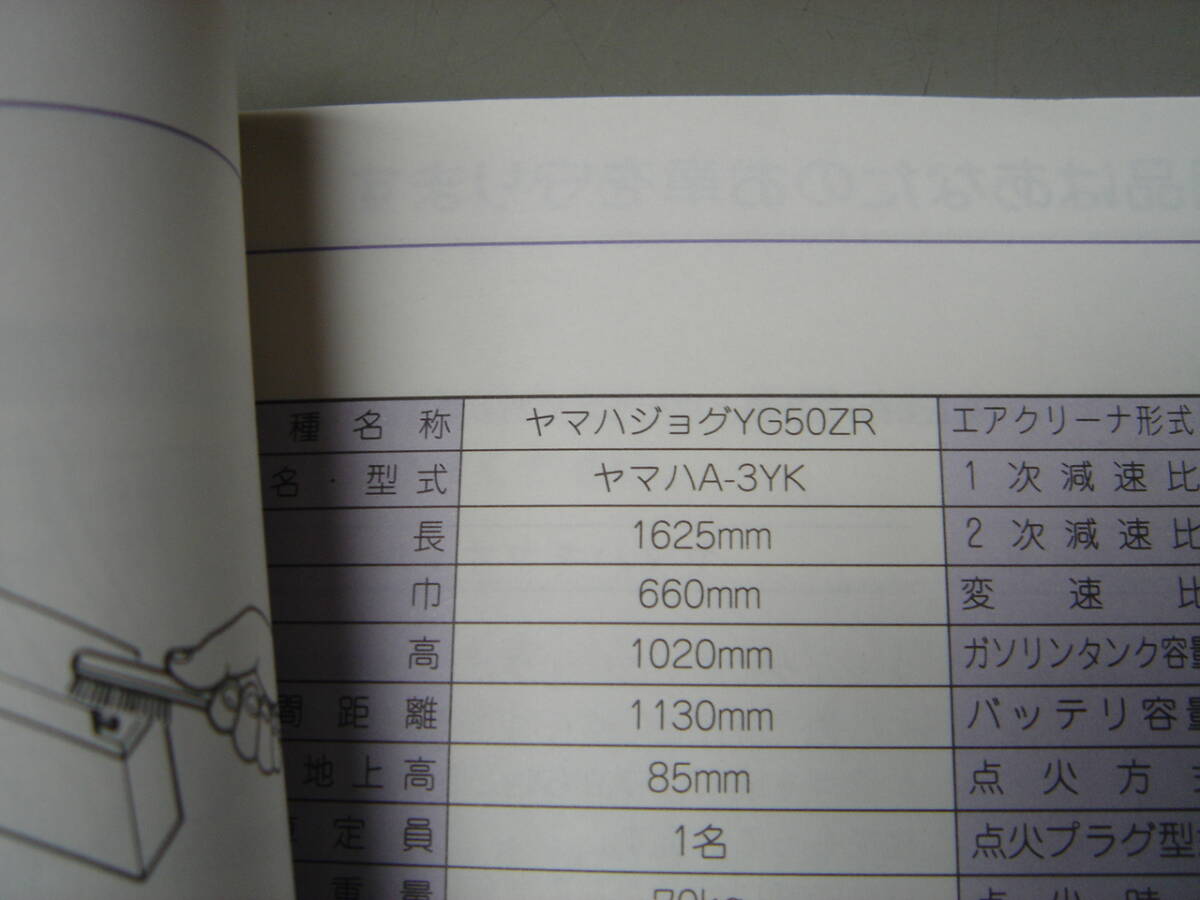 品はあなたのお車を守ります
種名称 ヤマハジョグYG50ZR エアクリーナ形式
名・型式 ヤマハA-3YK 1次減速比
長 1625mm 2次減速比
巾 660mm 変速比
高 1020mm ガソリンタンク容量
間距離 1130mm バッテリ容量
地上高 85mm 点火方
定員 1名 点火プラグ型
重量 点火時